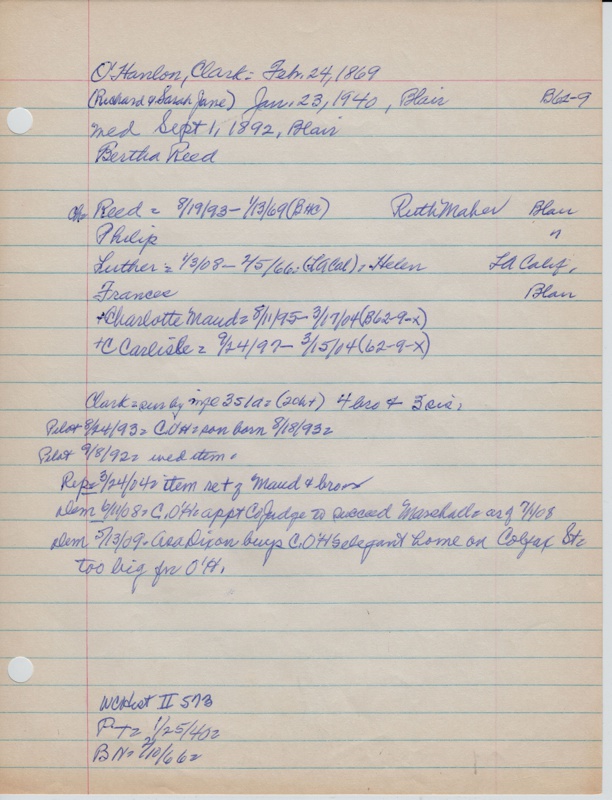 O'Hanlon, Clark = Feb. 24, 1869
(Richard & Sarah Jane) Jan. 23, 1940, Blair B62-9
med Sept 1, 1892, Blair
Bertha Reed
Ch= Reed = 8/19/93 - 1/13/69 (BHC) Ruth Maher Blair
Philip "
Luther = 1/3/08 - 2/5/66 = (LA Cal) = Helen LA Calif,
Frances Blair
+Charlotte Maud = 8/11/95 - 3/17/04 (B62-9-x)
+C Carlisle = 9/24/97 - 3/15/04 (62-9-X)
Clark = sur by 3s 1d = (20ht) 4 bro & 3 sis,
Pilot 8/24/93 = C.O'H = son born 8/18/93 =
Pilot 9/8/92 = wed item =
Rep = 3/24/04 = item ret of Maud & bro
Dem 6/11/08 = C. O'H = appt Co Judge to succeed Marshall = 7/1/08
Dem 5/13/09 = Asa Dixon buys C. O'H's elegant home on Colfax St =
too big for O'H.
WCHist II 573
PT = 1/25/40 =
BN = 2/10/66 =